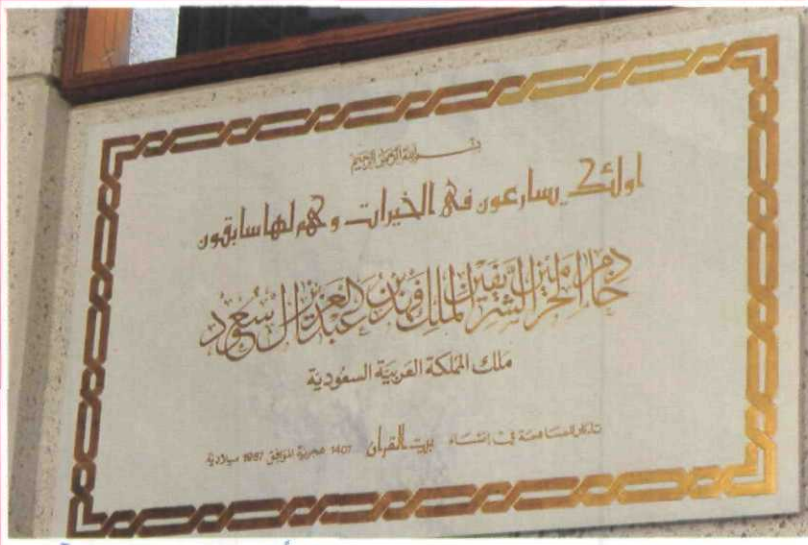 بسم الله الرحمن الرحيم
اولئك يسارعون في الخيرات وهم لها سابقون
خادم الحرمين الشريفين الملك فهد بن عبد العزيز آل سعود
ملك المملكة العربية السعودية
تذكار المساهمة في إنشاء بيت القرآن 1407 هجرية الموافق 1987 ميلادية